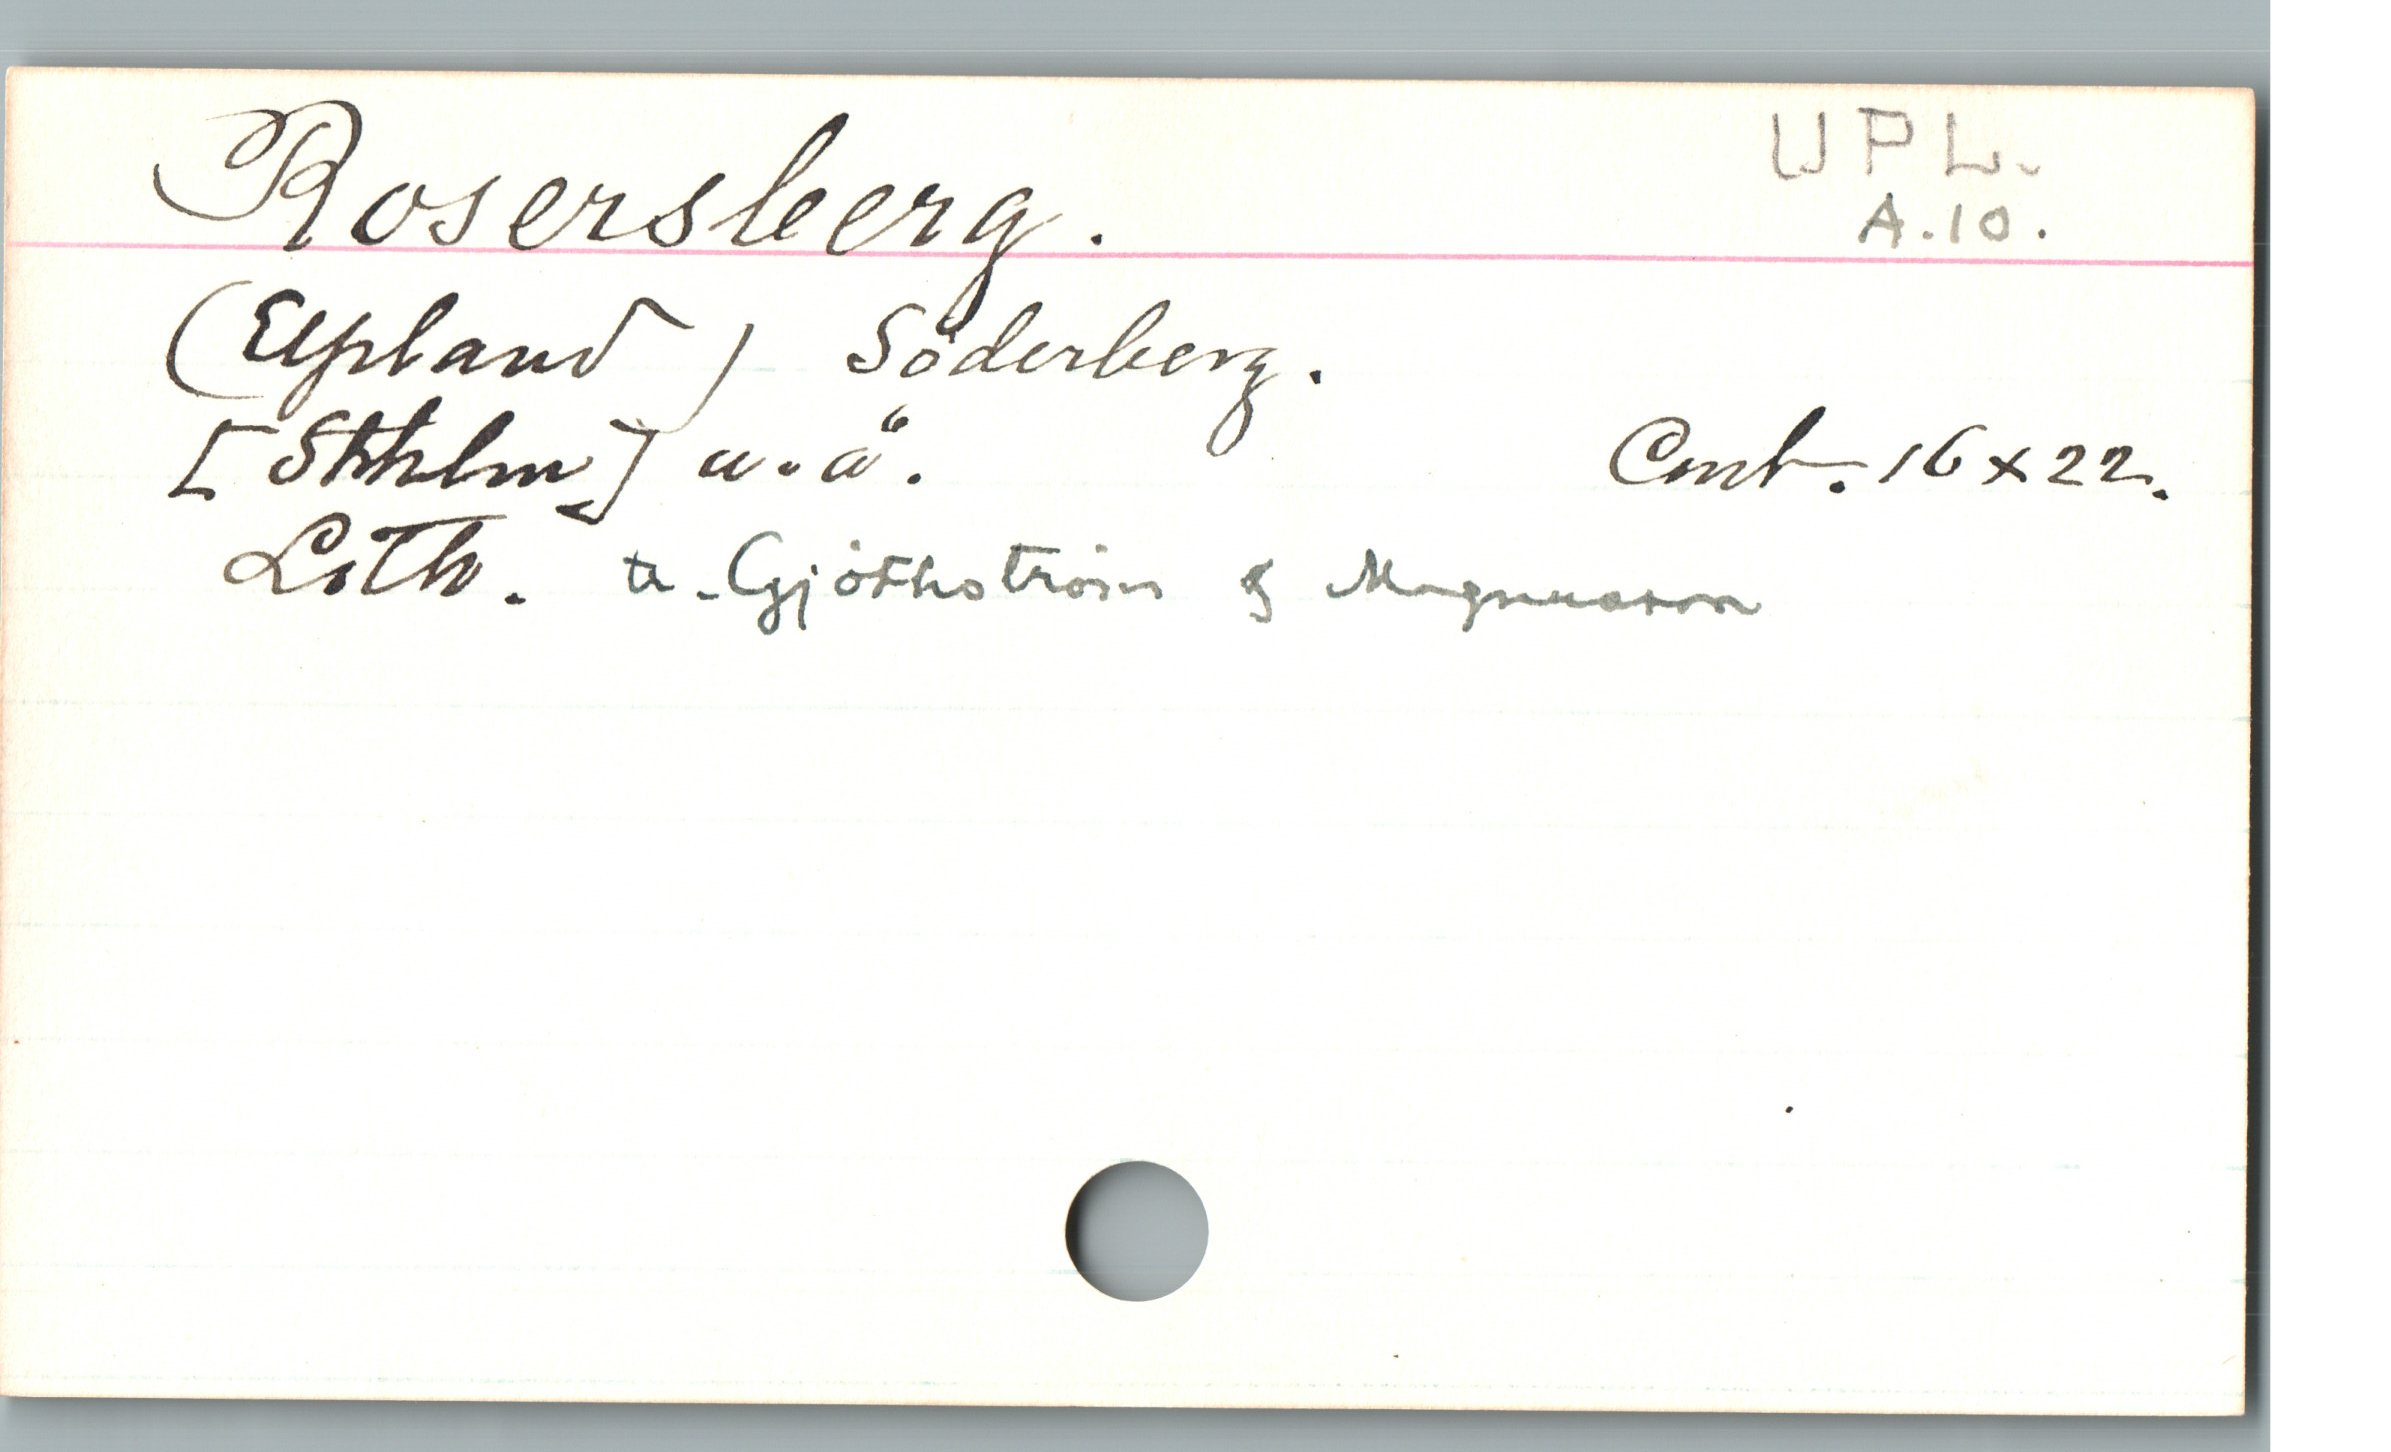 Rosersberg.
UPL.
A.10.
(Upland) Söderberg.
[Sthlm] u. å.
Cmb. 16 x 22.
Lith. tr. Gjöthström & Magnusson